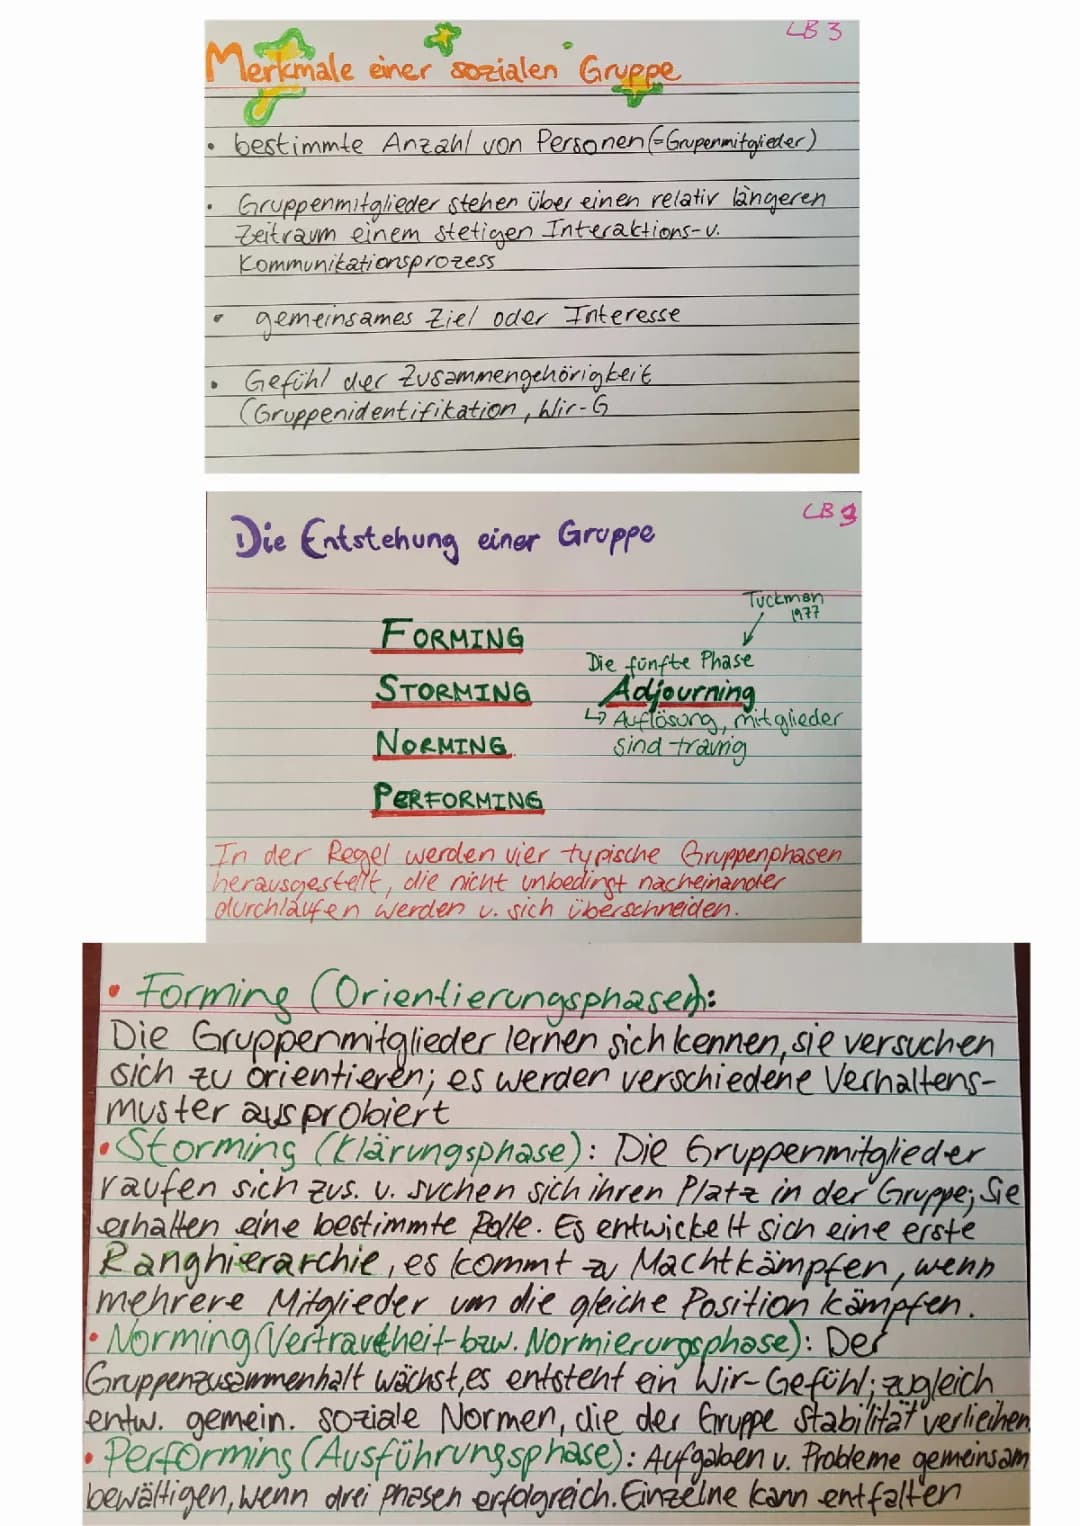 LB 3
Merkmale einer sozialen Gruppe
• bestimmte Anzahl von Personen (=Grupenmitglieder)
• Gruppenmitglieder stehen über einen relativ längeren
Zeitraum einem stetigen Interaktions- u.
Kommunikationsprozess
• gemeinsames Ziel oder Interesse
• Gefühl der Zusammengehörigkeit
(Gruppenidentifikation, Wir-G
LB 3
Die Entstehung einer Gruppe
Tuckman
1977
FORMING
Die fünfte Phase
STORMING
Adjourning
↳ Auflösung, mitglieder
sind traurig
NORMING
PERFORMING
In der Regel werden vier typische Gruppenphasen
herausgestellt, die nicht unbedingt nacheinander
durchlaufen werden u. sich überschneiden.
• Forming (Orientierungsphase):
Die Gruppenmitglieder lernen sich kennen, sie versuchen
sich zu orientieren; es werden verschiedene Verhaltens-
muster ausprobiert
• Storming (Klärungsphase): Die Gruppenmitglieder
raufen sich zus. u. suchen sich ihren Platz in der Gruppe; Sie
erhalten eine bestimmte Rolle. Es entwickelt sich eine erste
Ranghierarchie, es kommt zu Machtkämpfen, wenn
mehrere Mitglieder um die gleiche Position kämpfen.
• Norming (Vertrautheit- bzw. Normierungsphase): Der
Gruppenzusammenhalt wächst, es entsteht ein Wir-Gefühl; zugleich
entw. gemein. soziale Normen, die der Gruppe Stabilität verleihen
• Performing (Ausführungsphase): Aufgaben u. Probleme gemeinsam
bewältigen, wenn drei phasen erfolgreich. Einzelne kann entfalten